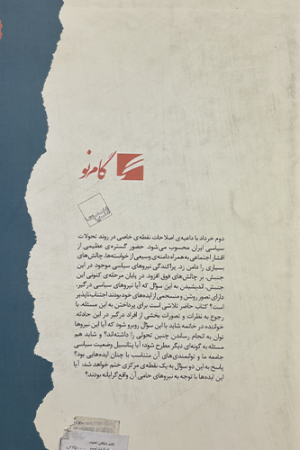 گام نو
دوم خرداد با داعیه‌ی اصلاحات نقطه‌ی خاصی در روند تحولات
سیاسی ایران محسوب می‌شود. حضور گسترده‌ی عظیمی از
اقشار اجتماعی به همراه دامنه‌ی وسیعی از خواسته‌ها، چالش‌های
بسیاری را دامن زد. پراکندگی نیروهای سیاسی موجود در این
جنبش، بر چالش‌های فوق افزود. در پایان مرحله‌ی کنونی این
جنبش، اندیشیدن به این سؤال که آیا نیروهای سیاسی درگیر،
دارای تصور روشن و منسجمی از ایده‌های خود بودند، اجتناب‌ناپذیر
است؟ کتاب حاضر تلاشی است برای پرداختن به این مسئله، با
رجوع به نظرات و تصورات بخشی از افراد درگیر در این حادثه.
خواننده در خاتمه شاید با این سؤال روبرو شود که آیا این نیروها
توان به انجام رساندن چنین تحولی را داشته‌اند؟ و شاید هم
مسئله به گونه‌ای دیگر مطرح شود: آیا پتانسیل وضعیت سیاسی
جامعه ما و توانمندی‌های آن متناسب با چنان ایده‌هایی بود؟
پاسخ به این دو سؤال به یک نقطه‌ی مرکزی ختم خواهد شد: آیا
این ایده‌ها با توجه به نیروهای حامی آن واقع‌گرایانه بودند؟